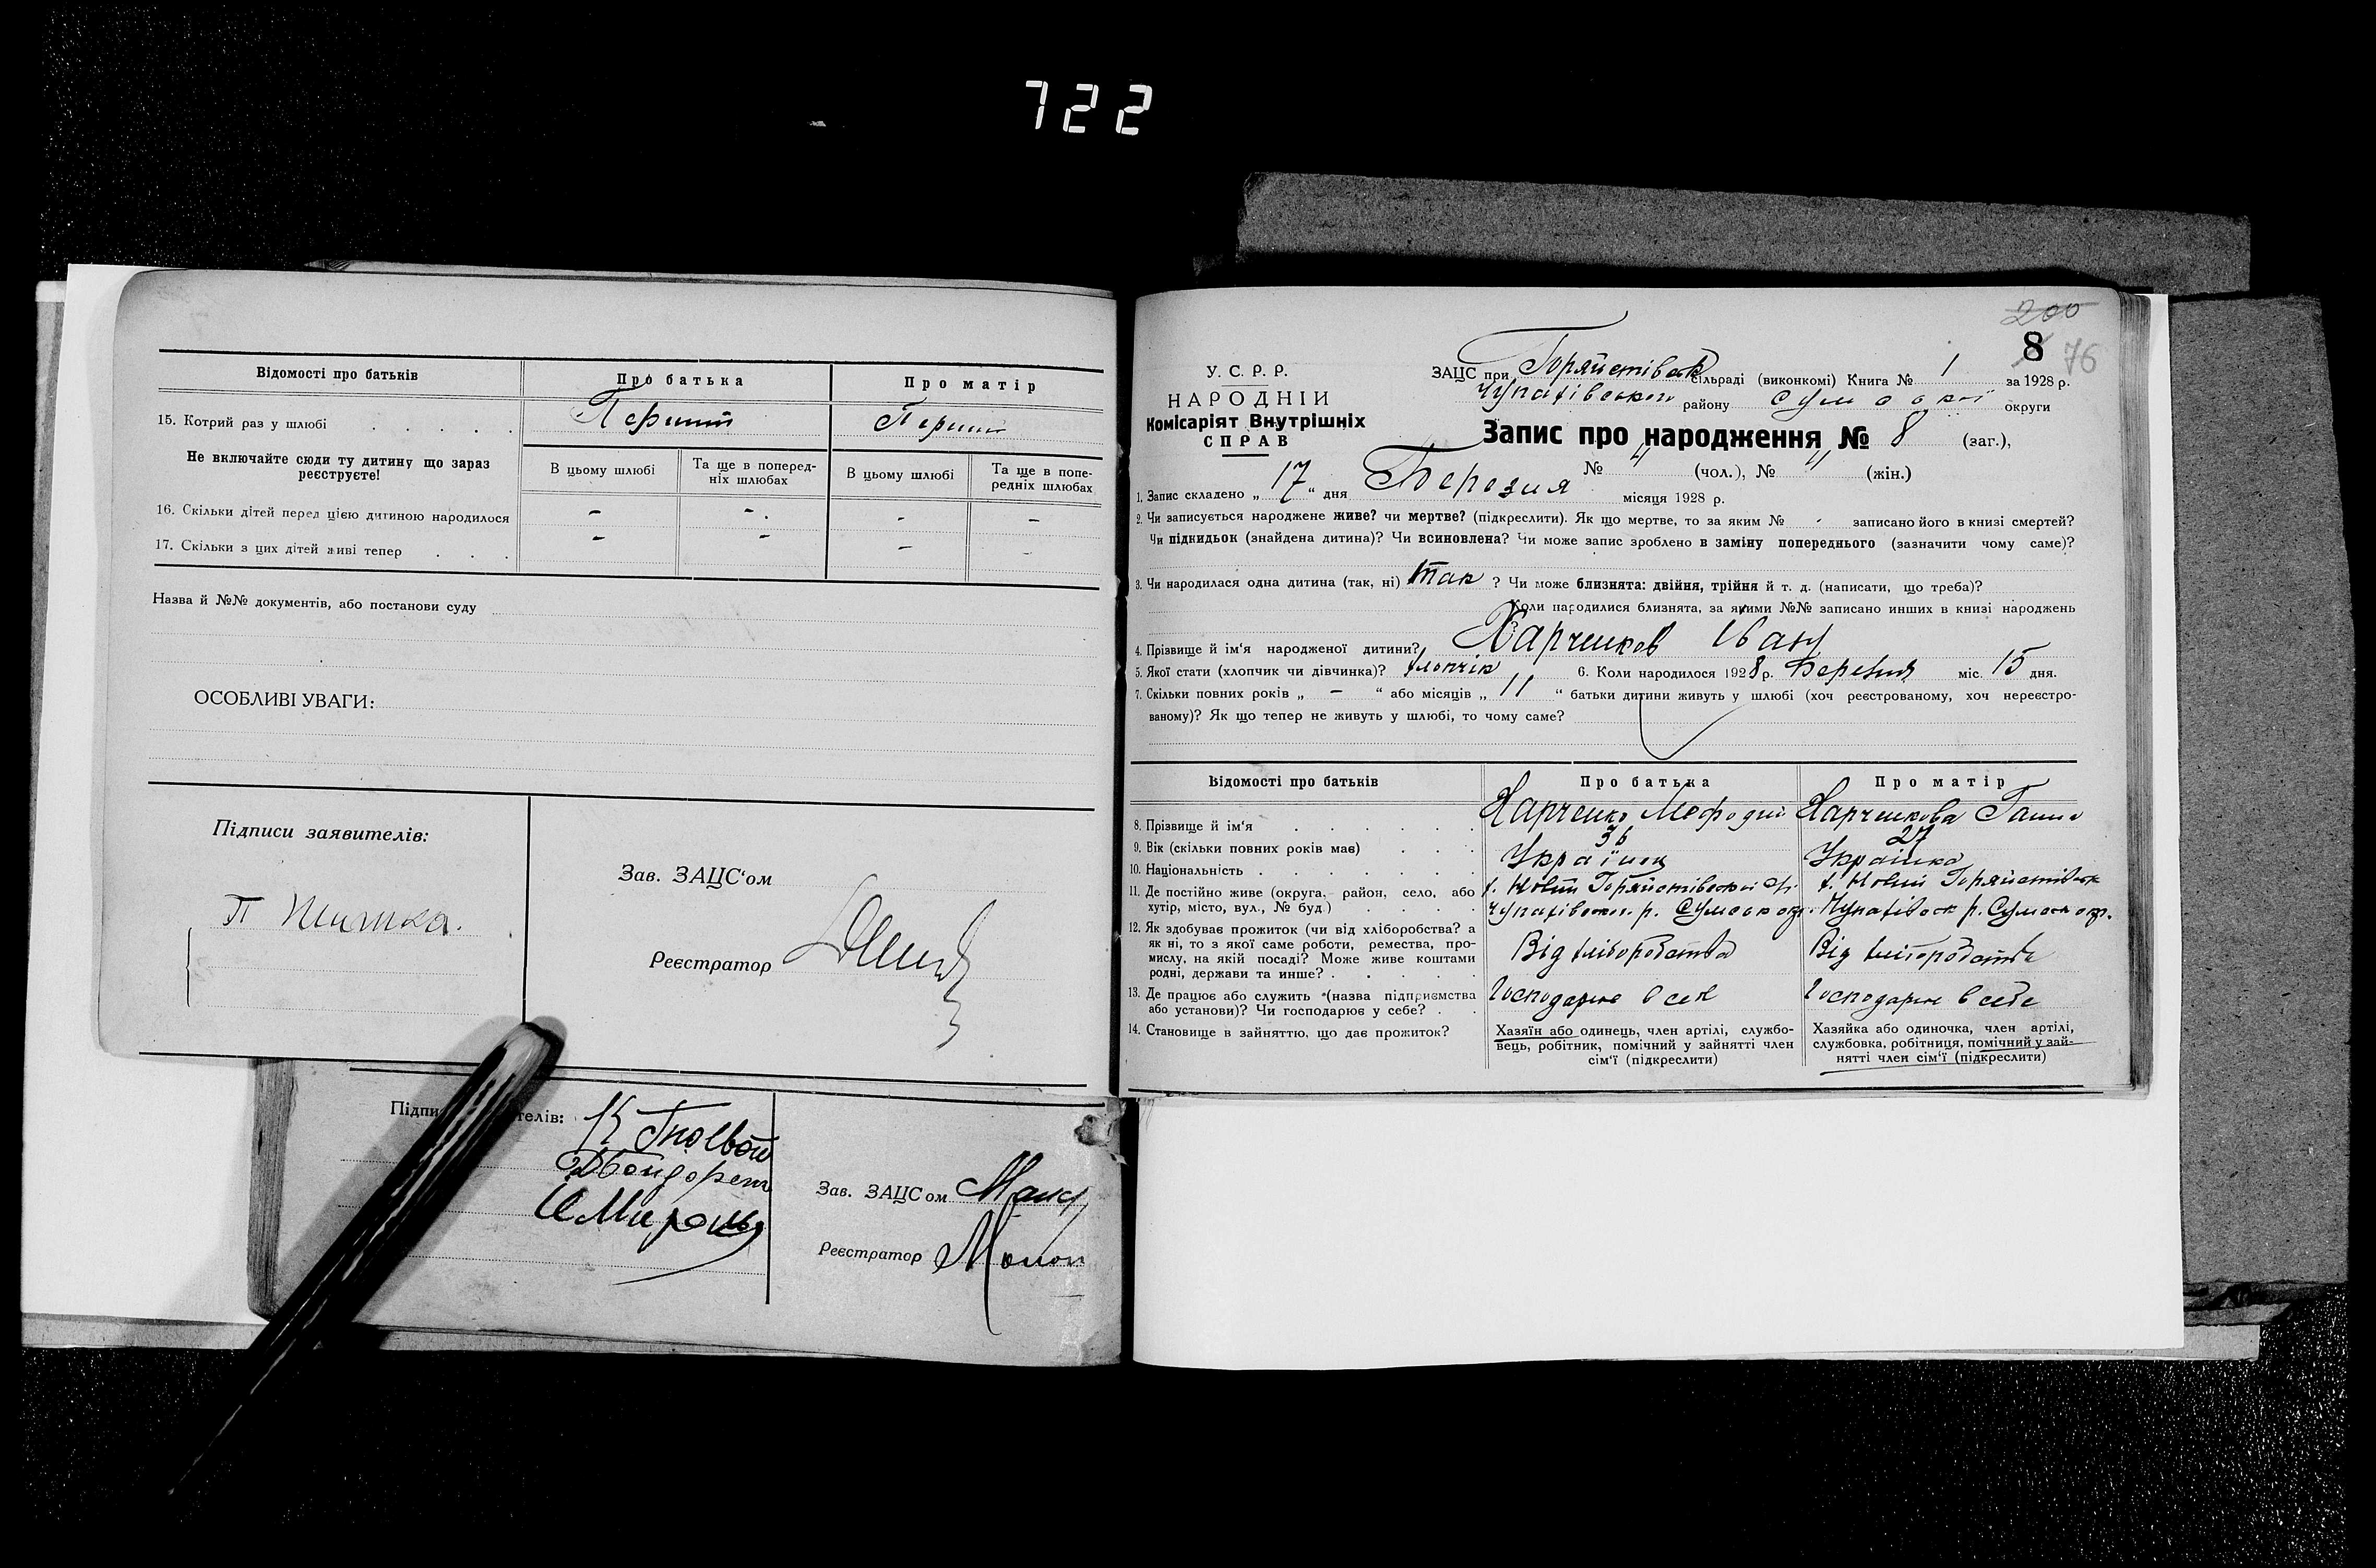 722
Відомості про батьків
Про батька
Про матір
15. Котрий раз у шлюбі
Перший
Перший
Не включайте сюди ту дитину що зараз
реєструєте!
В цьому шлюбі
Та ще в поперед-
ніх шлюбах
В цьому шлюбі
Та ще в попе-
редніх шлюбах
16. Скільки дітей перед цією дитиною народилося - - - -
17. Скільки з цих дітей живі тепер - - - -
Назва й №№ документів, або постанови суду
ОСОБЛИВІ УВАГИ:
Підписи заявителів:
Зав. ЗАЦС‘ом
Реєстратор
Зав. ЗАЦСом
Реєстратор
200
8
76
У. С. Р. Р.
НАРОДНІЙ
Комісаріят Внутрішніх
СПРАВ
ЗАЦС при сільраді (виконкомі) Книга № 1 за 1928 р.
району Сумської округи
Запис про народження № 8 (заг.),
№ 4 (чол.), № 4 (жін.)
1. Запис складено „ 17 “ дня Березня місяця 1928 р.
2. Чи записується народжене живе? чи мертве? (підкреслити). Як що мертве, то за яким № - записано його в книзі смертей?
Чи підкидьок (знайдена дитина)? Чи всиновлена? Чи може запис зроблено в заміну попереднього (зазначити чому саме)?
3. Чи народилася одна дитина (так, ні) так ? Чи може близнята: двійня, трійня й т. д. (написати, що треба)?
Коли народилися близнята, за якими №№ записано инших в книзі народжень
4. Прізвище й ім‘я народженої дитини? Харченков Іван
5. Якої стати (хлопчик чи дівчинка)? хлопчік 6. Коли народилося 1928 р. Березня міс. 15 дня.
7. Скільки повних років „ - “ або місяців „ 11 “ батьки дитини живуть у шлюбі (хоч реєстрованому, хоч нереєстро-
ваному)? Як що тепер не живуть у шлюбі, то чому саме?
Відомості про батьків
Про батька
Про матір
8. Прізвище й ім‘я
Харченко Мефодий
Харченкова Ганна
9. Вік (скільки повних років має)
36
27
10. Національність
Українец
Українка
11. Де постійно живе (округа, район, село, або
хутір, місто, вул., № буд.)
12. Як здобуває прожиток (чи від хліборобства? а
як ні, то з якої саме роботи, ремества, про-
мислу, на якій посаді? Може живе коштами
родні, держави та инше?
Від хліборобства
Від хліборобства
13. Де працює або служить (назва підприємства
або установи)? Чи господарює у себе?
Господарює в себе
Господарює в себе
14. Становище в зайняттю, що дає прожиток?
Хазяїн або одинець, член артілі, службо-
вець, робітник, помічний у зайнятті член
сім‘ї (підкреслити)
Хазяйка або одиночка, член артілі,
службовка, робітниця, помічний у зай-
нятті член сім‘ї (підкреслити)